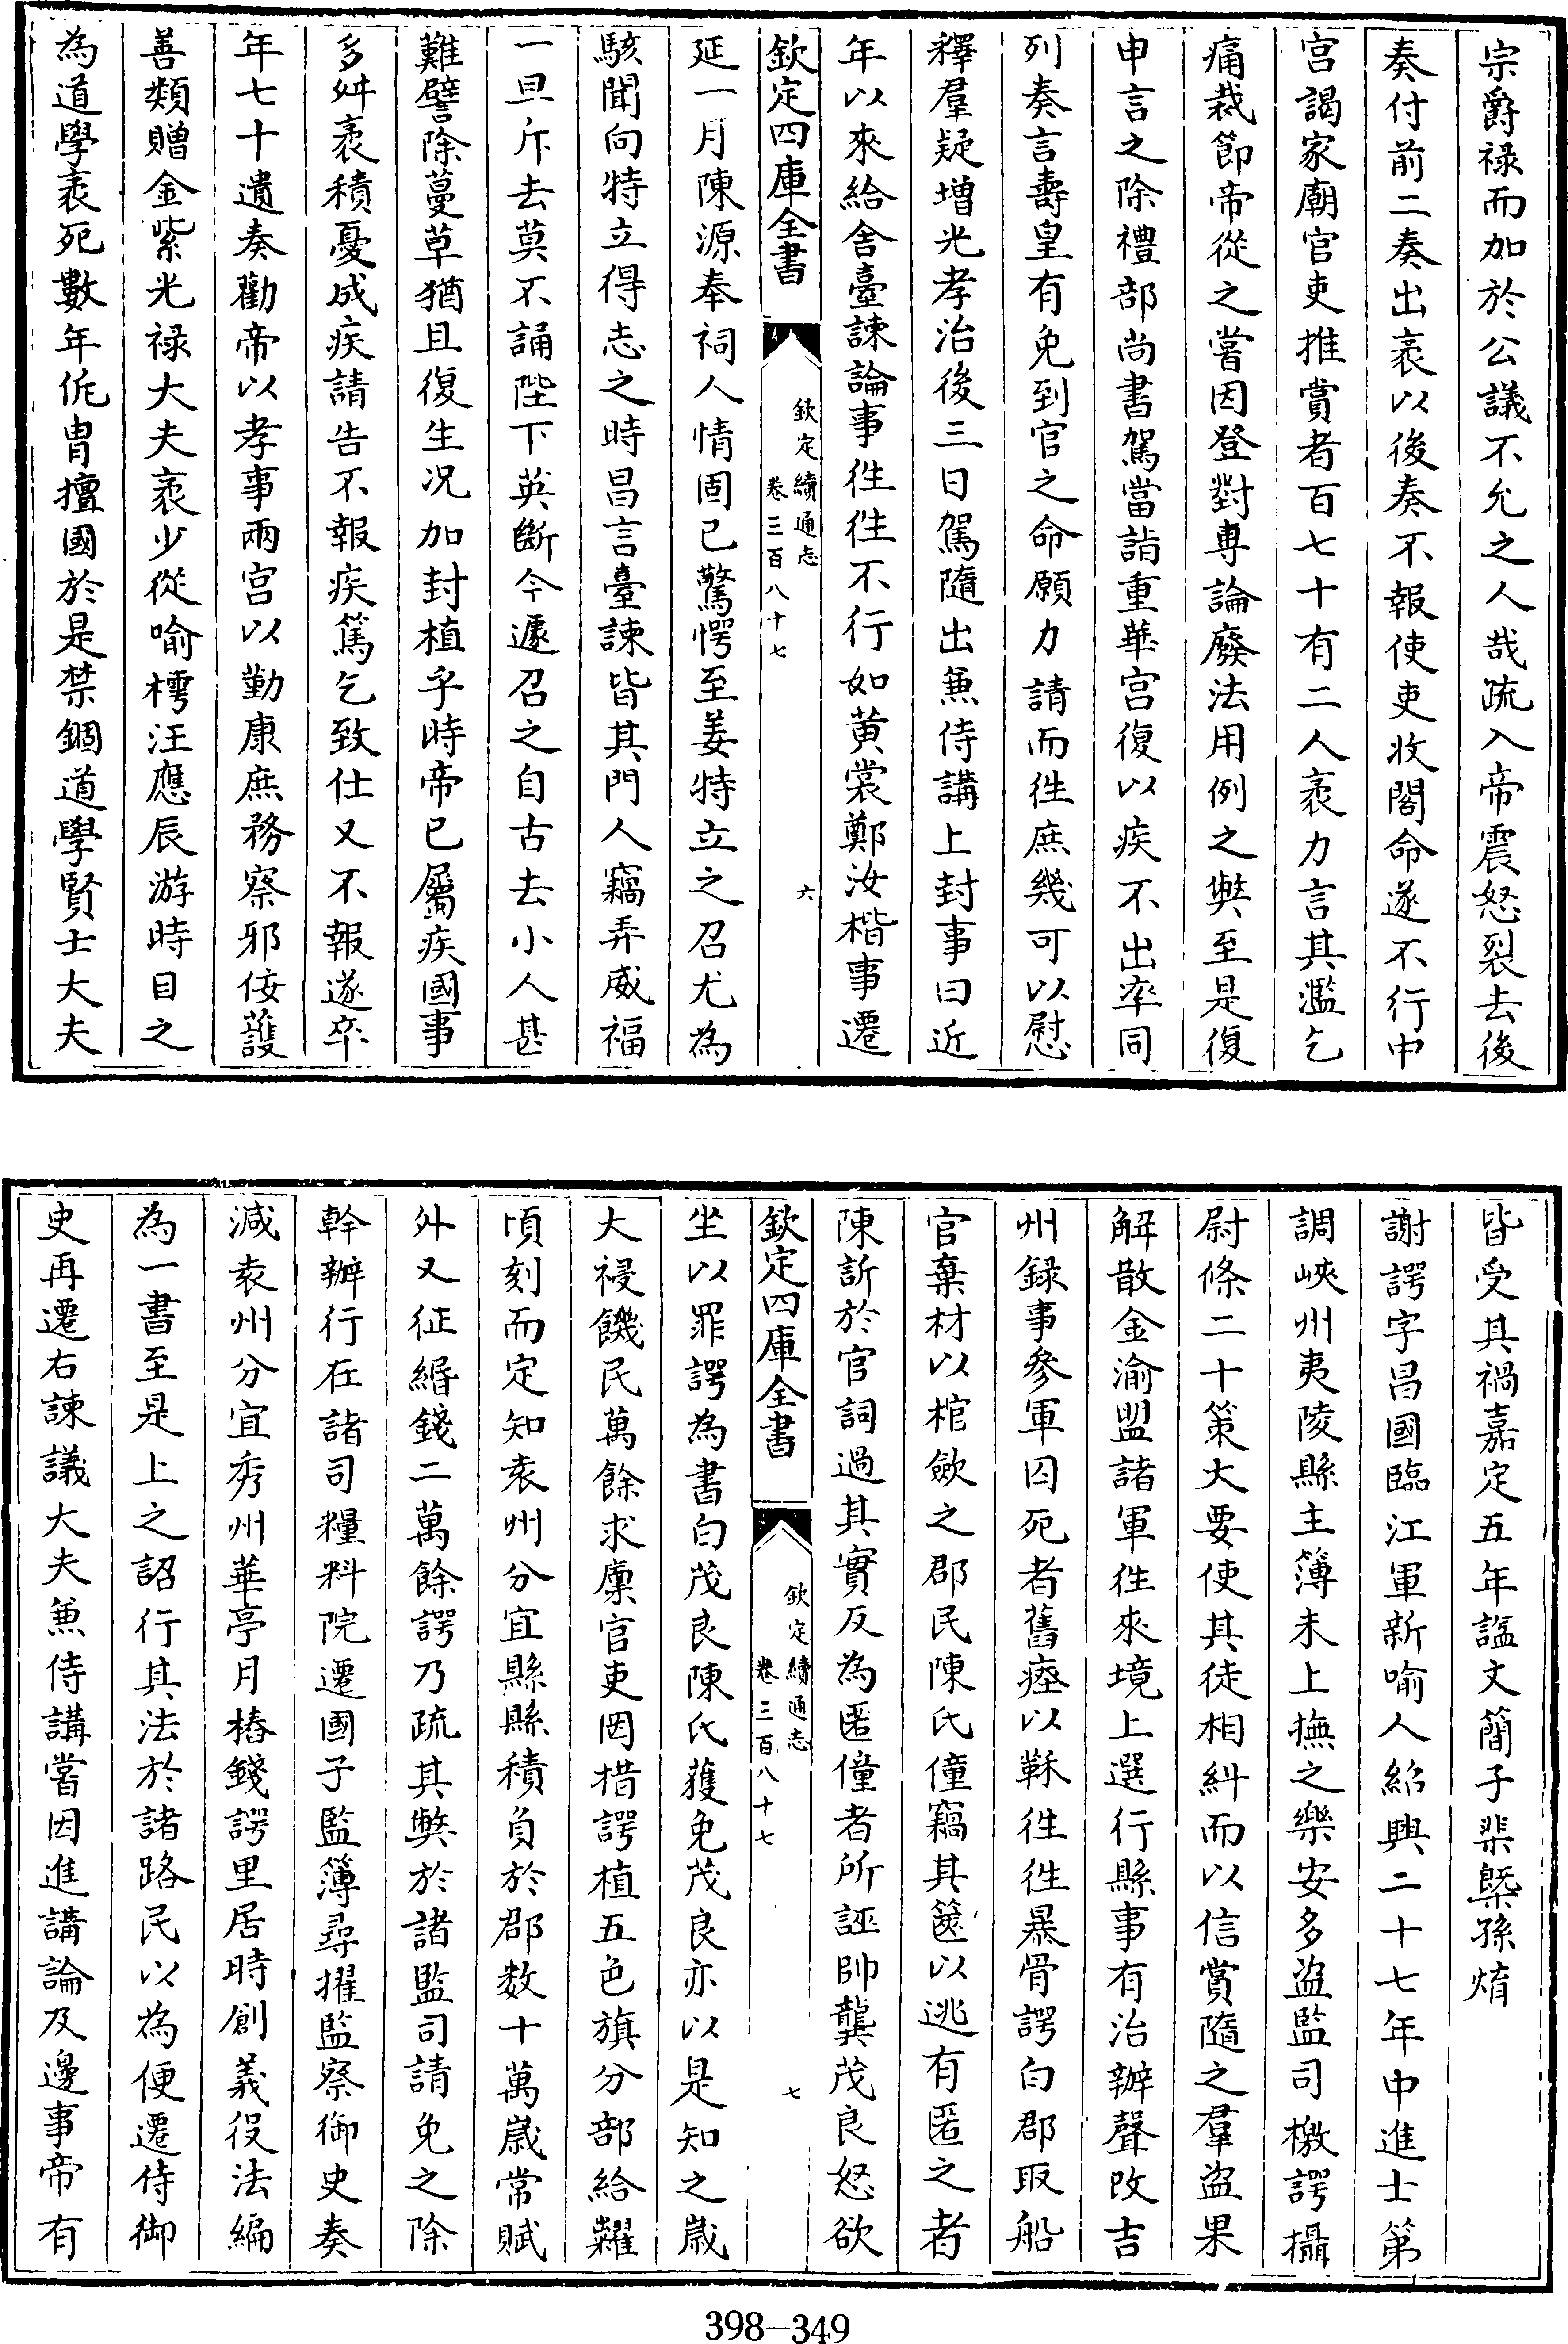 宗爵禄而加於公議不允之人哉疏入帝震怒裂去後
奏付前二奏出袤以後奏不報使吏收閣命遂不行中
宫謁家廟官吏推賞者百七十有二人袤力言其濫乞
痛裁節帝從之嘗因登對專論廢法用例之獘至是復
申言之除禮部尚書駕當詣重華宫復以疾不出率同
列奏言壽皇有免到官之命願力請而徃庶幾可以慰
釋羣疑增光孝治後三日駕隨出兼侍講上封事曰近
年以來給舍臺諫論事徃徃不行如黄裳鄭汝楷事遷
欽定四庫全書
欽定續通志
卷三百八十七
六
延一月陳源奉祠人情固已驚愕至姜特立之召尤為
駭聞向特立得志之時昌言臺諫皆其門人竊弄威福
一旦斥去莫不誦陛下英斷今遽召之自古去小人甚
難譬除蔓草猶且復生况加封植乎時帝已屬疾國事
多舛袤積憂成疾請告不報疾篤乞致仕又不報遂卒
年七十遺奏勸帝以孝事兩宫以勤康庶務察邪佞護
善類贈金紫光禄大夫袤少從喻樗汪應辰游時目之
為道學袤死數年侂胄擅國於是禁錮道學賢士大夫
皆受其禍嘉定五年諡文簡子棐槩孫焴
謝諤字昌國臨江軍新喻人紹興二十七年中進士第
調峽州夷陵縣主簿未上撫之樂安多盗監司檄諤攝
尉條二十策大要使其徒相糾而以信賞隨之羣盗果
解散金渝盟諸軍徃來境上選行縣事有治辦聲改吉
州録事參軍囚死者舊瘞以鞂徃徃暴骨諤白郡取船
官棄材以棺歛之郡民陳氏僮竊其篋以逃有匿之者
陳訴於官詞過其實反為匿僮者所誣帥龔茂良怒欲
欽定四庫全書
欽定續通志
卷三百八十七
七
坐以罪諤為書白茂良陳氏獲免茂良亦以是知之歲
大祲饑民萬餘求廩官吏罔措諤植五色旗分部給糶
頃刻而定知袁州分宜縣縣積負於郡数十萬歲常賦
外又征緡錢二萬餘諤乃疏其獘於諸監司請免之除
幹辦行在諸司糧料院遷國子監簿尋擢監察御史奏
減袁州分宜秀州華亭月樁錢諤里居時創義役法編
為一書至是上之詔行其法於諸路民以為便遷侍御
史再遷右諫議大夫兼侍講嘗因進講論及邊事帝有
398-349